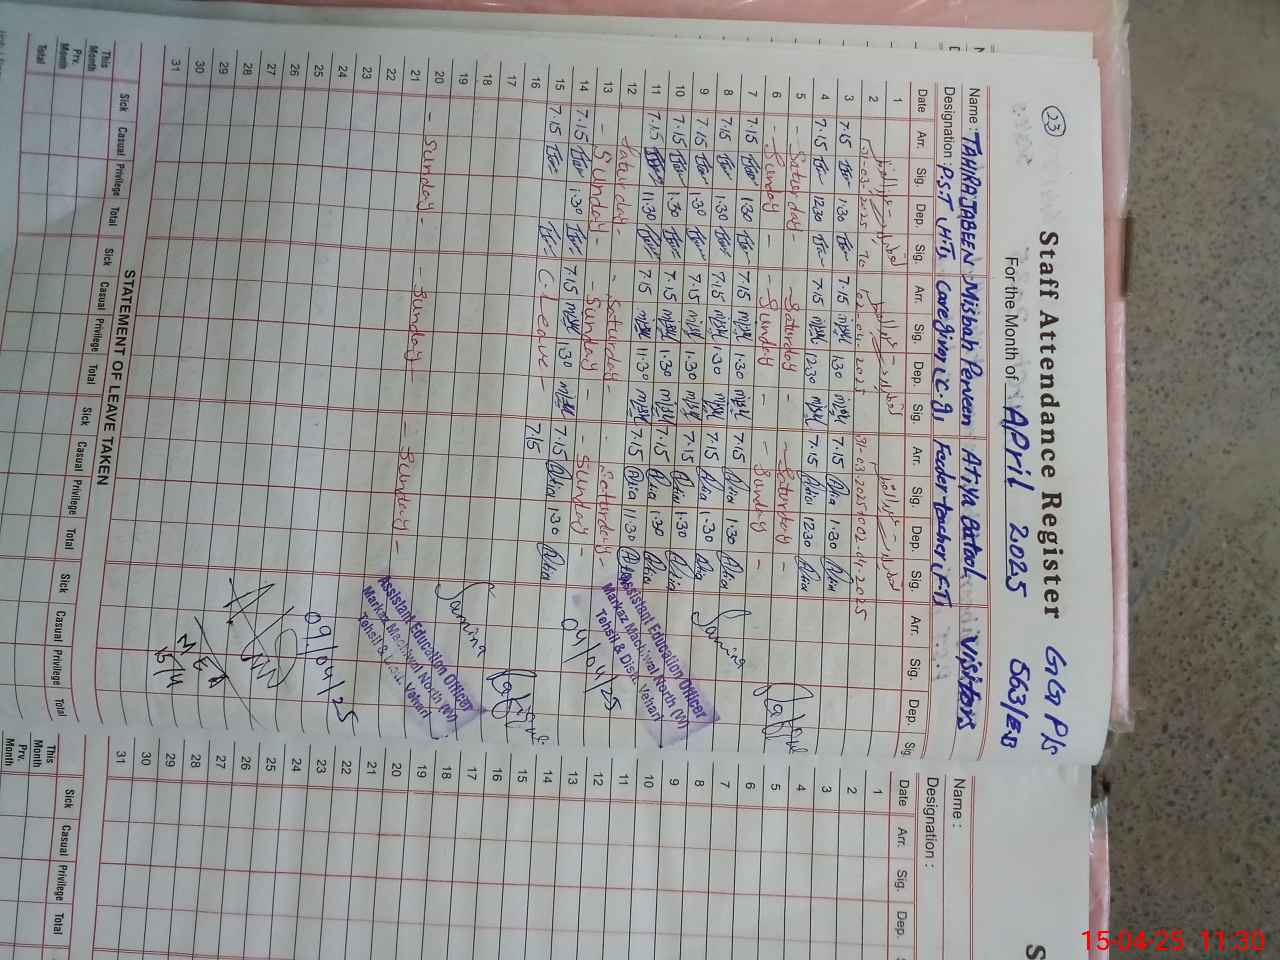 23
Staff Attendance Register GGP/S
For the Month of April 2025 563/E.B
Name : TAHIRA JABEEN Misbah Perveen Atiya Batool Visitors
Designation : P.S.T (H.T) Caregiver (C.G) Feeder teacher (F.T)
Date Arr. Sig. Dep. Sig. Arr. Sig. Dep. Sig. Arr. Sig. Dep. Sig. Arr. Sig. Dep. Sig
1
2 31-03-2025 To 02-04-2025 31-03-2025 02-04-2025
3 7.15 1:30 7.15 1:30 7.15 Atia 1:30 Atia
4 7.15 12:30 7.15 12:30 7.15 Atia 12:30 Atia
5 - Saturday - - Saturday - - Saturday -
6 - Sunday - - Sunday - - Sunday -
7 7.15 1:30 7.15 1:30 7.15 Atia 1:30 Atia
8 7.15 1:30 7.15 1:30 7.15 Atia 1:30 Atia
9 7.15 1:30 7.15 1:30 7.15 Atia 1:30 Atia
10 7.15 1:30 7.15 1:30 7.15 Atia 1:30 Atia
11 7.15 11:30 7.15 11:30 7.15 Atia 11:30 Atia
12 - Saturday - - Saturday - - Saturday -
13 - Sunday - - Sunday - - Sunday -
14 7.15 1:30 7.15 1:30 7.15 Atia 1:30 Atia
15 7.15 C-Leave - 7.15
16
17
18
19
20 - Sunday - - Sunday - - Sunday -
21
22
23
24
25
26
27
28
29
30
31
Samina
Assistant Education Officer
Markaz Machiwal North (W)
Tehsil & Distt. Vehari
04/04/25
Samina
Assistant Education Officer
Markaz Machiwal North (W)
Tehsil & Distt. Vehari
09/04/25
MEA
15/4
STATEMENT OF LEAVE TAKEN
Sick Casual Privilege Total Sick Casual Privilege Total Sick Casual Privilege Total Sick Casual Privilege Total
This Month
Prv. Month
Total
S
Name :
Designation :
Date Arr. Sig. Dep.
1
2
3
4
5
6
7
8
9
10
11
12
13
14
15
16
17
18
19
20
21
22
23
24
25
26
27
28
29
30
31
Sick Casual Privilege Total
This Month
Prv. Month
15-04-25 11:30